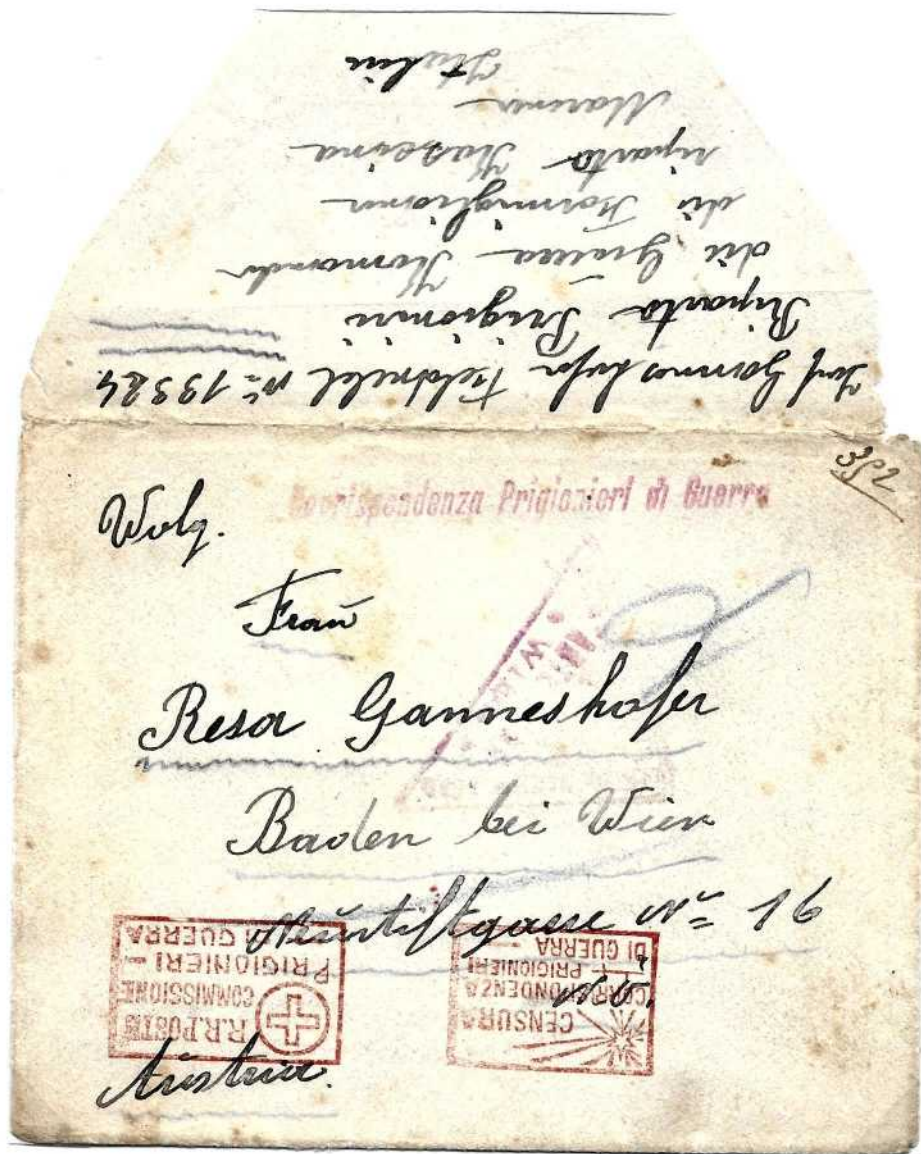 Ganneshofer Feldwebl No 19324
Riparto Prigionii
die Gueea Komando
dii Kornigliana
riparto Kaseina
Marina
Italia
Corrispendenza Prigionieri di Guerra
Wolg.
Frau
Resa Ganneshofer
Baden bei Wien
Neustiftgasse No = 16
N.Ö.
Austria.
R.R. POSTE
COMMISSIONE
PRIGIONIERI
DI GUERRA
CENSURA
CORRISPONDENZA
PRIGIONIERI
DI GUERRA